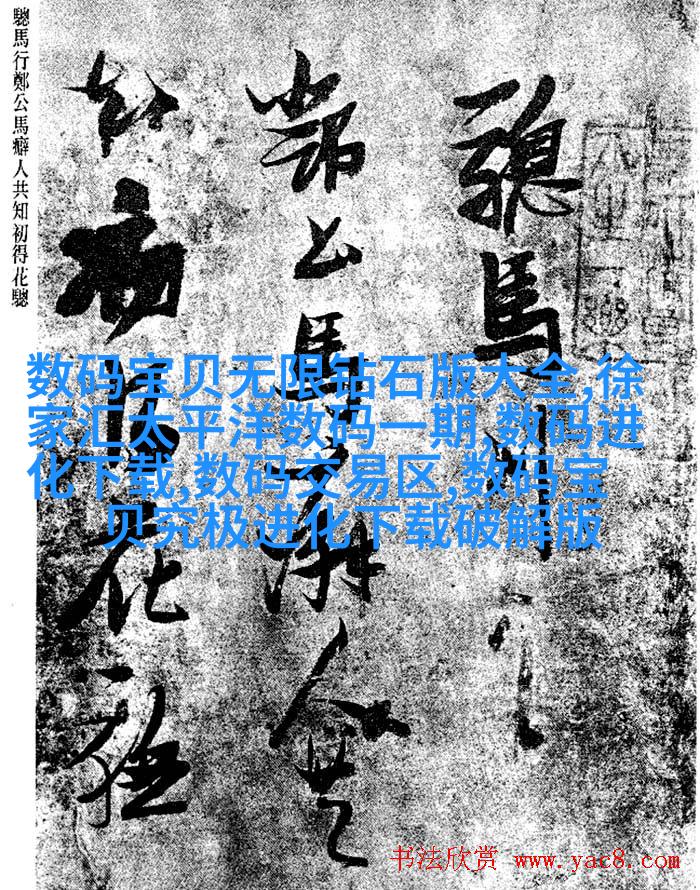 驄馬行鄭公馬癖人共知初得花驄
驄馬行
鄭公馬癖人共
知初得花驄
数码宝贝无限钻石版大全,徐
家汇太平洋数码一期,数码进
化下载,数码交易区,数码宝
贝究极进化下载破解版
书法欣赏 www.yac8.com